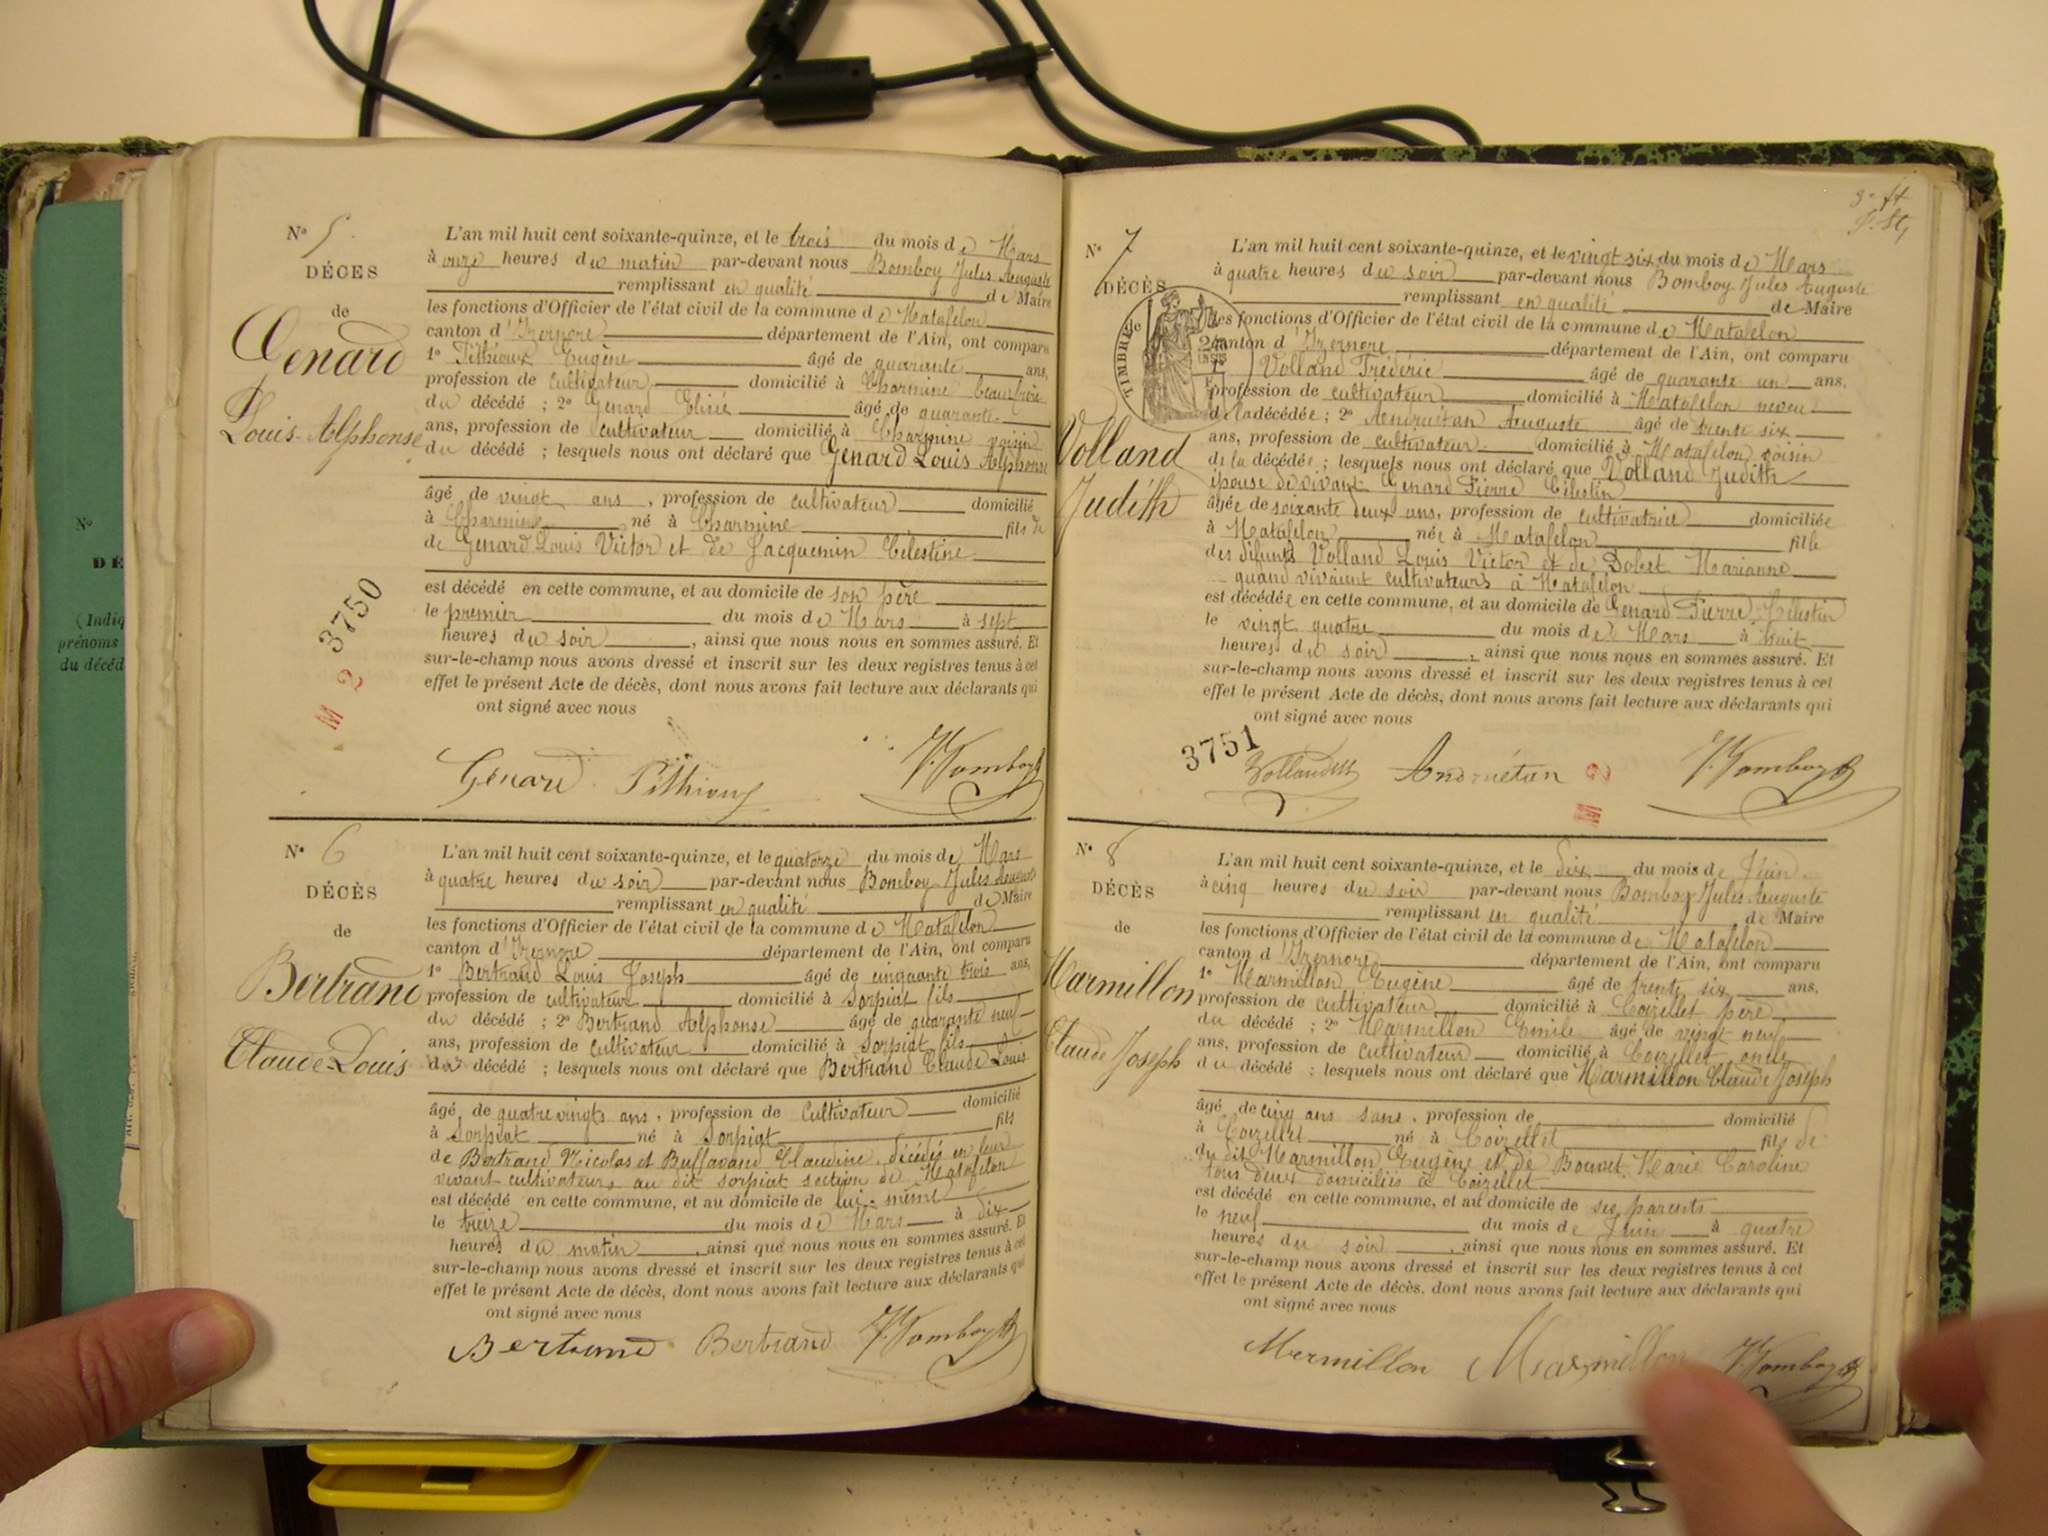 N° 5
DÉCES
de
Genard
Louis-Alphonse
L'an mil huit cent soixante-quinze, et le trois du mois de Mars
à onze heures du matin par-devant nous Bomboy Jules Auguste
remplissant en qualité de Maire
les fonctions d'Officier de l'état civil de la commune de Matafelon
canton d'Izernore département de l'Ain, ont comparu
1° Pithioux Eugène âgé de quarante ans,
profession de cultivateur domicilié à Charmine beaufrère
du décédé ; 2° Genard Elisé âgé de quarante
ans, profession de cultivateur domicilié à Charmine voisin
du décédé ; lesquels nous ont déclaré que Genard Louis Alphonse
âgé de vingt ans, profession de cultivateur domicilié
à Charmine né à Charmine fils de
de Genard Louis Victor et de Jacquemin Célestine
est décédé en cette commune, et au domicile de son père
le premier du mois de Mars à sept
heures du soir, ainsi que nous nous en sommes assuré. Et
sur-le-champ nous avons dressé et inscrit sur les deux registres tenus à cet
effet le présent Acte de décès, dont nous avons fait lecture aux déclarants qui
ont signé avec nous
3750
M 2
Genard Pithioux J. Bomboy
N° 6
DÉCÈS
de
Bertrand
Claude-Louis
L'an mil huit cent soixante-quinze, et le quatorze du mois de Mars
à quatre heures du soir par-devant nous Bomboy Jules Auguste
remplissant en qualité de Maire
les fonctions d'Officier de l'état civil de la commune de Matafelon
canton d'Izernore département de l'Ain, ont comparu
1° Bertrand Louis Joseph âgé de cinquante trois ans,
profession de cultivateur domicilié à Sorpiat fils
du décédé ; 2° Bertrand Alphonse âgé de quarante neuf
ans, profession de cultivateur domicilié à Sorpiat fils
du décédé ; lesquels nous ont déclaré que Bertrand Claude Louis
âgé de quatre vingts ans, profession de Cultivateur domicilié
à Sorpiat né à Sorpiat fils
de Bertrand Nicolas et Buffavand Claudine, décédés en leur
vivant cultivateurs au dit sorpiat section de Matafelon
est décédé en cette commune, et au domicile de lui-même
le treize du mois de Mars à dix
heures du matin, ainsi que nous nous en sommes assuré. Et
sur-le-champ nous avons dressé et inscrit sur les deux registres tenus à cet
effet le présent Acte de décès, dont nous avons fait lecture aux déclarants qui
ont signé avec nous
Bertrand Bertrand J. Bomboy
N° 7
DÉCÈS
TIMBRE
Volland
Judith
L'an mil huit cent soixante-quinze, et le vingt six du mois de Mars
à quatre heures du soir par-devant nous Bomboy Jules Auguste
remplissant en qualité de Maire
les fonctions d'Officier de l'état civil de la commune de Matafelon
canton d'Izernore département de l'Ain, ont comparu
1° Volland Frédéric âgé de quarante un ans,
profession de cultivateur domicilié à Matafelon neveu
de la décédée ; 2° Andruétan Auguste âgé de trente six
ans, profession de cultivateur domicilié à Matafelon voisin
de la décédée ; lesquels nous ont déclaré que Volland Judith
épouse de vivant Genard Pierre Célestin
âgée de soixante deux ans, profession de cultivatrice domiciliée
à Matafelon née à Matafelon fille
des défunts Volland Louis Victor et de Bolet Marianne
quand vivaient cultivateurs à Matafelon
est décédée en cette commune, et au domicile de Genard Pierre Célestin
le vingt quatre du mois de Mars à huit
heures du soir, ainsi que nous nous en sommes assuré. Et
sur-le-champ nous avons dressé et inscrit sur les deux registres tenus à cet
effet le présent Acte de décès, dont nous avons fait lecture aux déclarants qui
ont signé avec nous
3751
Andruétan J. Bomboy
M 2
N° 8
DÉCÈS
de
Marmillon
Claude Joseph
L'an mil huit cent soixante-quinze, et le dix du mois de Juin
à cinq heures du soir par-devant nous Bomboy Jules Auguste
remplissant en qualité de Maire
les fonctions d'Officier de l'état civil de la commune de Matafelon
canton d'Izernore département de l'Ain, ont comparu
1° Marmillon Eugène âgé de trente six ans,
profession de cultivateur domicilié à Coizellet père
du décédé ; 2° Marmillon Emile âgé de vingt neuf
ans, profession de cultivateur domicilié à Coizellet oncle
du décédé ; lesquels nous ont déclaré que Marmillon Claude Joseph
âgé de cinq ans sans, profession de domicilié
à Coizellet né à Coizellet fils de
du dit Marmillon Eugène et de Bouvet Marie Caroline
tous deux domiciliés à Coizellet
est décédé en cette commune, et au domicile de ses parents
le neuf du mois de Juin à quatre
heures du soir, ainsi que nous nous en sommes assuré. Et
sur-le-champ nous avons dressé et inscrit sur les deux registres tenus à cet
effet le présent Acte de décès, dont nous avons fait lecture aux déclarants qui
ont signé avec nous
Mermillon Marmillon J. Bomboy
N°
DÉ
(Indiq
prénoms
du décéd